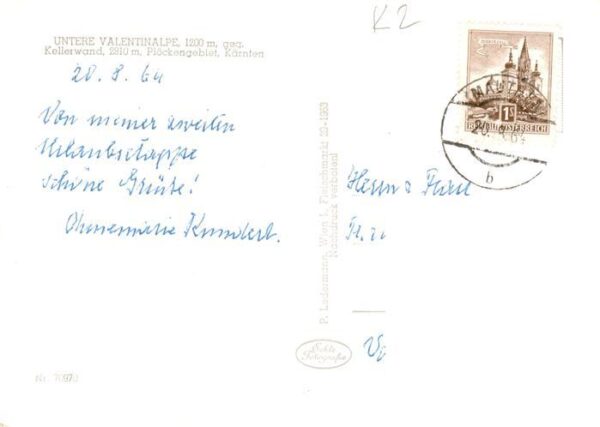 K2
UNTERE VALENTINALPE, 1200 m, geg.
Kellerwand, 2810 m, Plöckengebiet, Kärnten
20. 8. 64
Von meiner zweiten
Urlaubsetappe
schöne Grüße!
Kundert.
Herrn & Frau
P. Ledermann, Wien I, Fleischmarkt 20 - 1963
Nachdruck verboten!
Echte
Fotografie
Nr. 70970
1S
REPUBLIK ÖSTERREICH
MAUTHEN
b